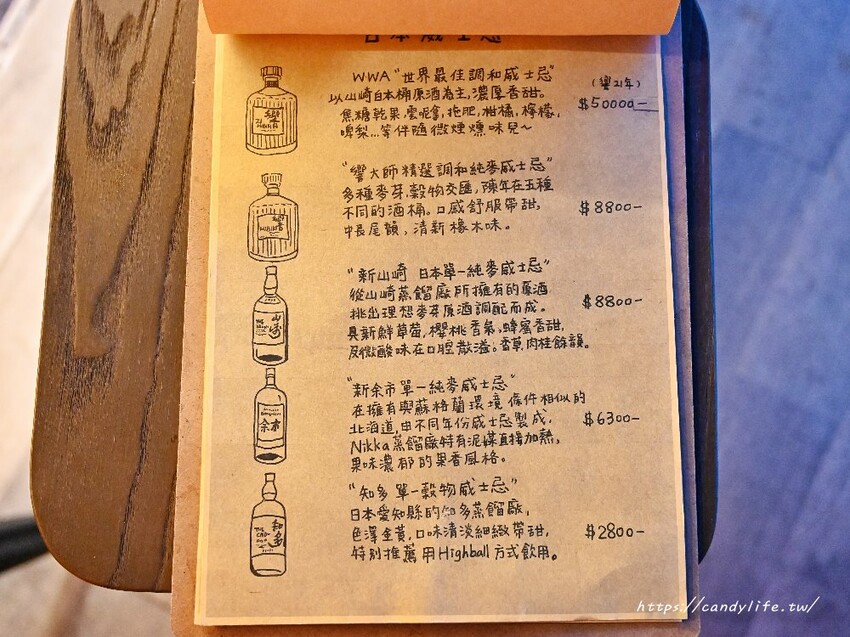 日本威士忌
WWA "世界最佳調和威士忌"
(響21年)
以山崎白木桶原酒為主,濃厚香甜。
$50000-
焦糖乾果,雲呢拿,拖肥,柑橘,檸檬,
啤梨...等伴隨微煙燻味兒~
"響大師精選調和純麥威士忌"
多種麥芽,穀物交匯,陳年在五種
不同的酒桶。口感舒服帶甜,
$8800-
中長尾韻,清新橡木味。
"新山崎 日本單一純麥威士忌"
從山崎蒸餾廠所擁有的原酒
$8800-
挑出理想麥芽原酒調配而成。
具新鮮草莓,櫻桃香氣,蜂蜜香甜,
及微酸味在口腔散溢。香草,肉桂餘韻。
"新余市單一純麥威士忌"
在擁有與蘇格蘭環境條件相似的
北海道,由不同年份威士忌製成,
$6300-
Nikka蒸餾廠特有泥煤直接加熱,
果味濃郁的果香風格。
"知多單一穀物威士忌"
日本愛知縣的知多蒸餾廠,
色澤金黃,口味清淡細緻帶甜,
$2800-
特別推薦用Highball方式飲用。
響
HIBIKI
響
HIBIKI
山崎
余市
知多
https://candylife.tw/